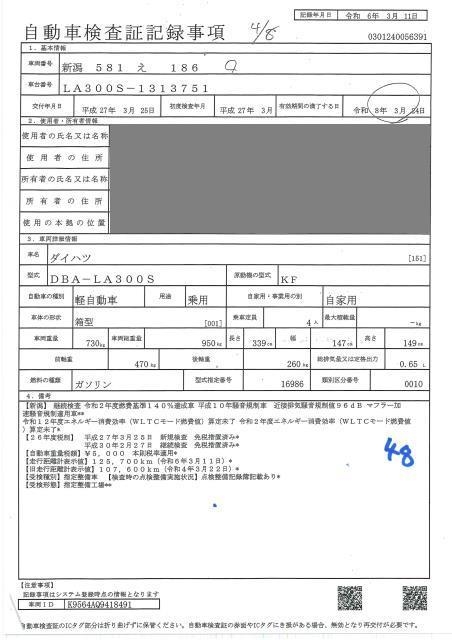 記録年月日 令和 6年 3月 11日
自動車検査証記録事項 4/8
0301240056391
1. 基本情報
車両番号 新潟 581 え 186
車台番号 LA300S-1313751
交付年月日 平成 27年 3月 25日 初度検査年月 平成 27年 3月 有効期間の満了する日 令和 8年 3月 24日
2. 使用者・所有者情報
使用者の氏名又は名称
使用者の住所
所有者の氏名又は名称
所有者の住所
使用の本拠の位置
3. 車両詳細情報
車名 ダイハツ [151]
型式 DBA-LA300S 原動機の型式 KF
自動車の種別 軽自動車 用途 乗用 自家用・事業用の別 自家用
車体の形状 箱型 [001] 乗車定員 4人 最大積載量 -kg
車両重量 730kg 車両総重量 950kg 長さ 339cm 幅 147cm 高さ 149cm
前軸重 470kg 後軸重 260kg 総排気量又は定格出力 0.65 L
燃料の種類 ガソリン 型式指定番号 16986 類別区分番号 0010
4. 備考
【新潟】 継続検査 令和2年度燃費基準140%達成車 平成10年騒音規制車 近接排気騒音規制値96dB マフラー加
速騒音規制適用車**
令和12年度エネルギー消費効率(WLTCモード燃費値) 算定未了 令和2年度エネルギー消費効率(WLTCモード燃費値
) 算定未了*
【26年度税別】 平成27年3月25日 新規検査 免税措置済み*
平成30年2月27日 継続検査 免税措置済み*
【自動車重量税額】 ¥5,000 本則税率適用*
【走行距離計表示値】 125,700km (令和6年3月11日)*
【旧走行距離計表示値】 107,600km (令和4年3月22日)*
【受検種別】 指定整備車 【検査時の点検整備実施状況】 点検整備記録簿記載あり*
【受検形態】 指定整備工場**
48
【注意事項】
記載事項はシステム登録時点の情報となります
車両ID K9564AQ9418491
自動車検査証のICタグ部分は折り曲げずに保管ください。自動車検査証の券面やICタグにき損がある場合、無効となり再交付が必要です。